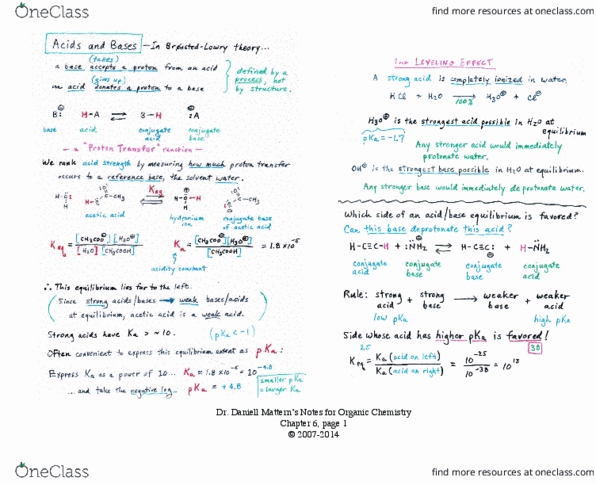 OneClass
find more resources at oneclass.com
Acids and Bases — In Brønsted-Lowry theory...
(takes)
a base accepts a proton from an acid
(gives up)
an acid donates a proton to a base
defined by a process, not by structure.
B: H-A ⇌ B-H :A
base acid conjugate acid conjugate base
— a "Proton Transfer" reaction —
We rank acid strength by measuring how much proton transfer
occurs to a reference base, the solvent water.
Keq
acetic acid hydronium ion conjugate base of acetic acid
Keq = [CH3COO⊖][H3O⊕] / [H2O][CH3COOH] Ka = [CH3COO⊖][H3O⊕] / [CH3COOH] = 1.8 × 10⁻⁵
acidity constant
∴ This equilibrium lies far to the left.
(Since strong acids/bases → weak bases/acids
at equilibrium, acetic acid is a weak acid.)
Strong acids have Ka > ~10. (pKa < -1)
Often convenient to express this equilibrium extent as pKa:
Express Ka as a power of 10... Ka = 1.8 × 10⁻⁵ = 10⁻⁴·⁸
... and take the negative log... pKa = +4.8
smaller pKa = larger Ka
THE LEVELING EFFECT
A strong acid is completely ionized in water.
HCl + H2O → 100% H3O⊕ + Cl⊖
H3O⊕ is the strongest acid possible in H2O at equilibrium
pKa = -1.7
Any stronger acid would immediately
protonate water.
OH⊖ is the strongest base possible in H2O at equilibrium.
Any stronger base would immediately deprotonate water.
Which side of an acid/base equilibrium is favored?
Can this base deprotonate this acid?
H-C≡C-H + :NH2⊖ ⇌ H-C≡C:⊖ + H-NH2
conjugate acid conjugate base conjugate base conjugate acid
Rule: strong acid + strong base → weaker base + weaker acid
low pKa high pKa
Side whose acid has higher pKa is favored!
25 38
Keq = Ka (acid on left) / Ka (acid on right) = 10⁻²⁵ / 10⁻³⁸ = 10¹³
Dr. Daniell Mattern's Notes for Organic Chemistry
Chapter 6, page 1
© 2007-2014
OneClass
find more resources at oneclass.com